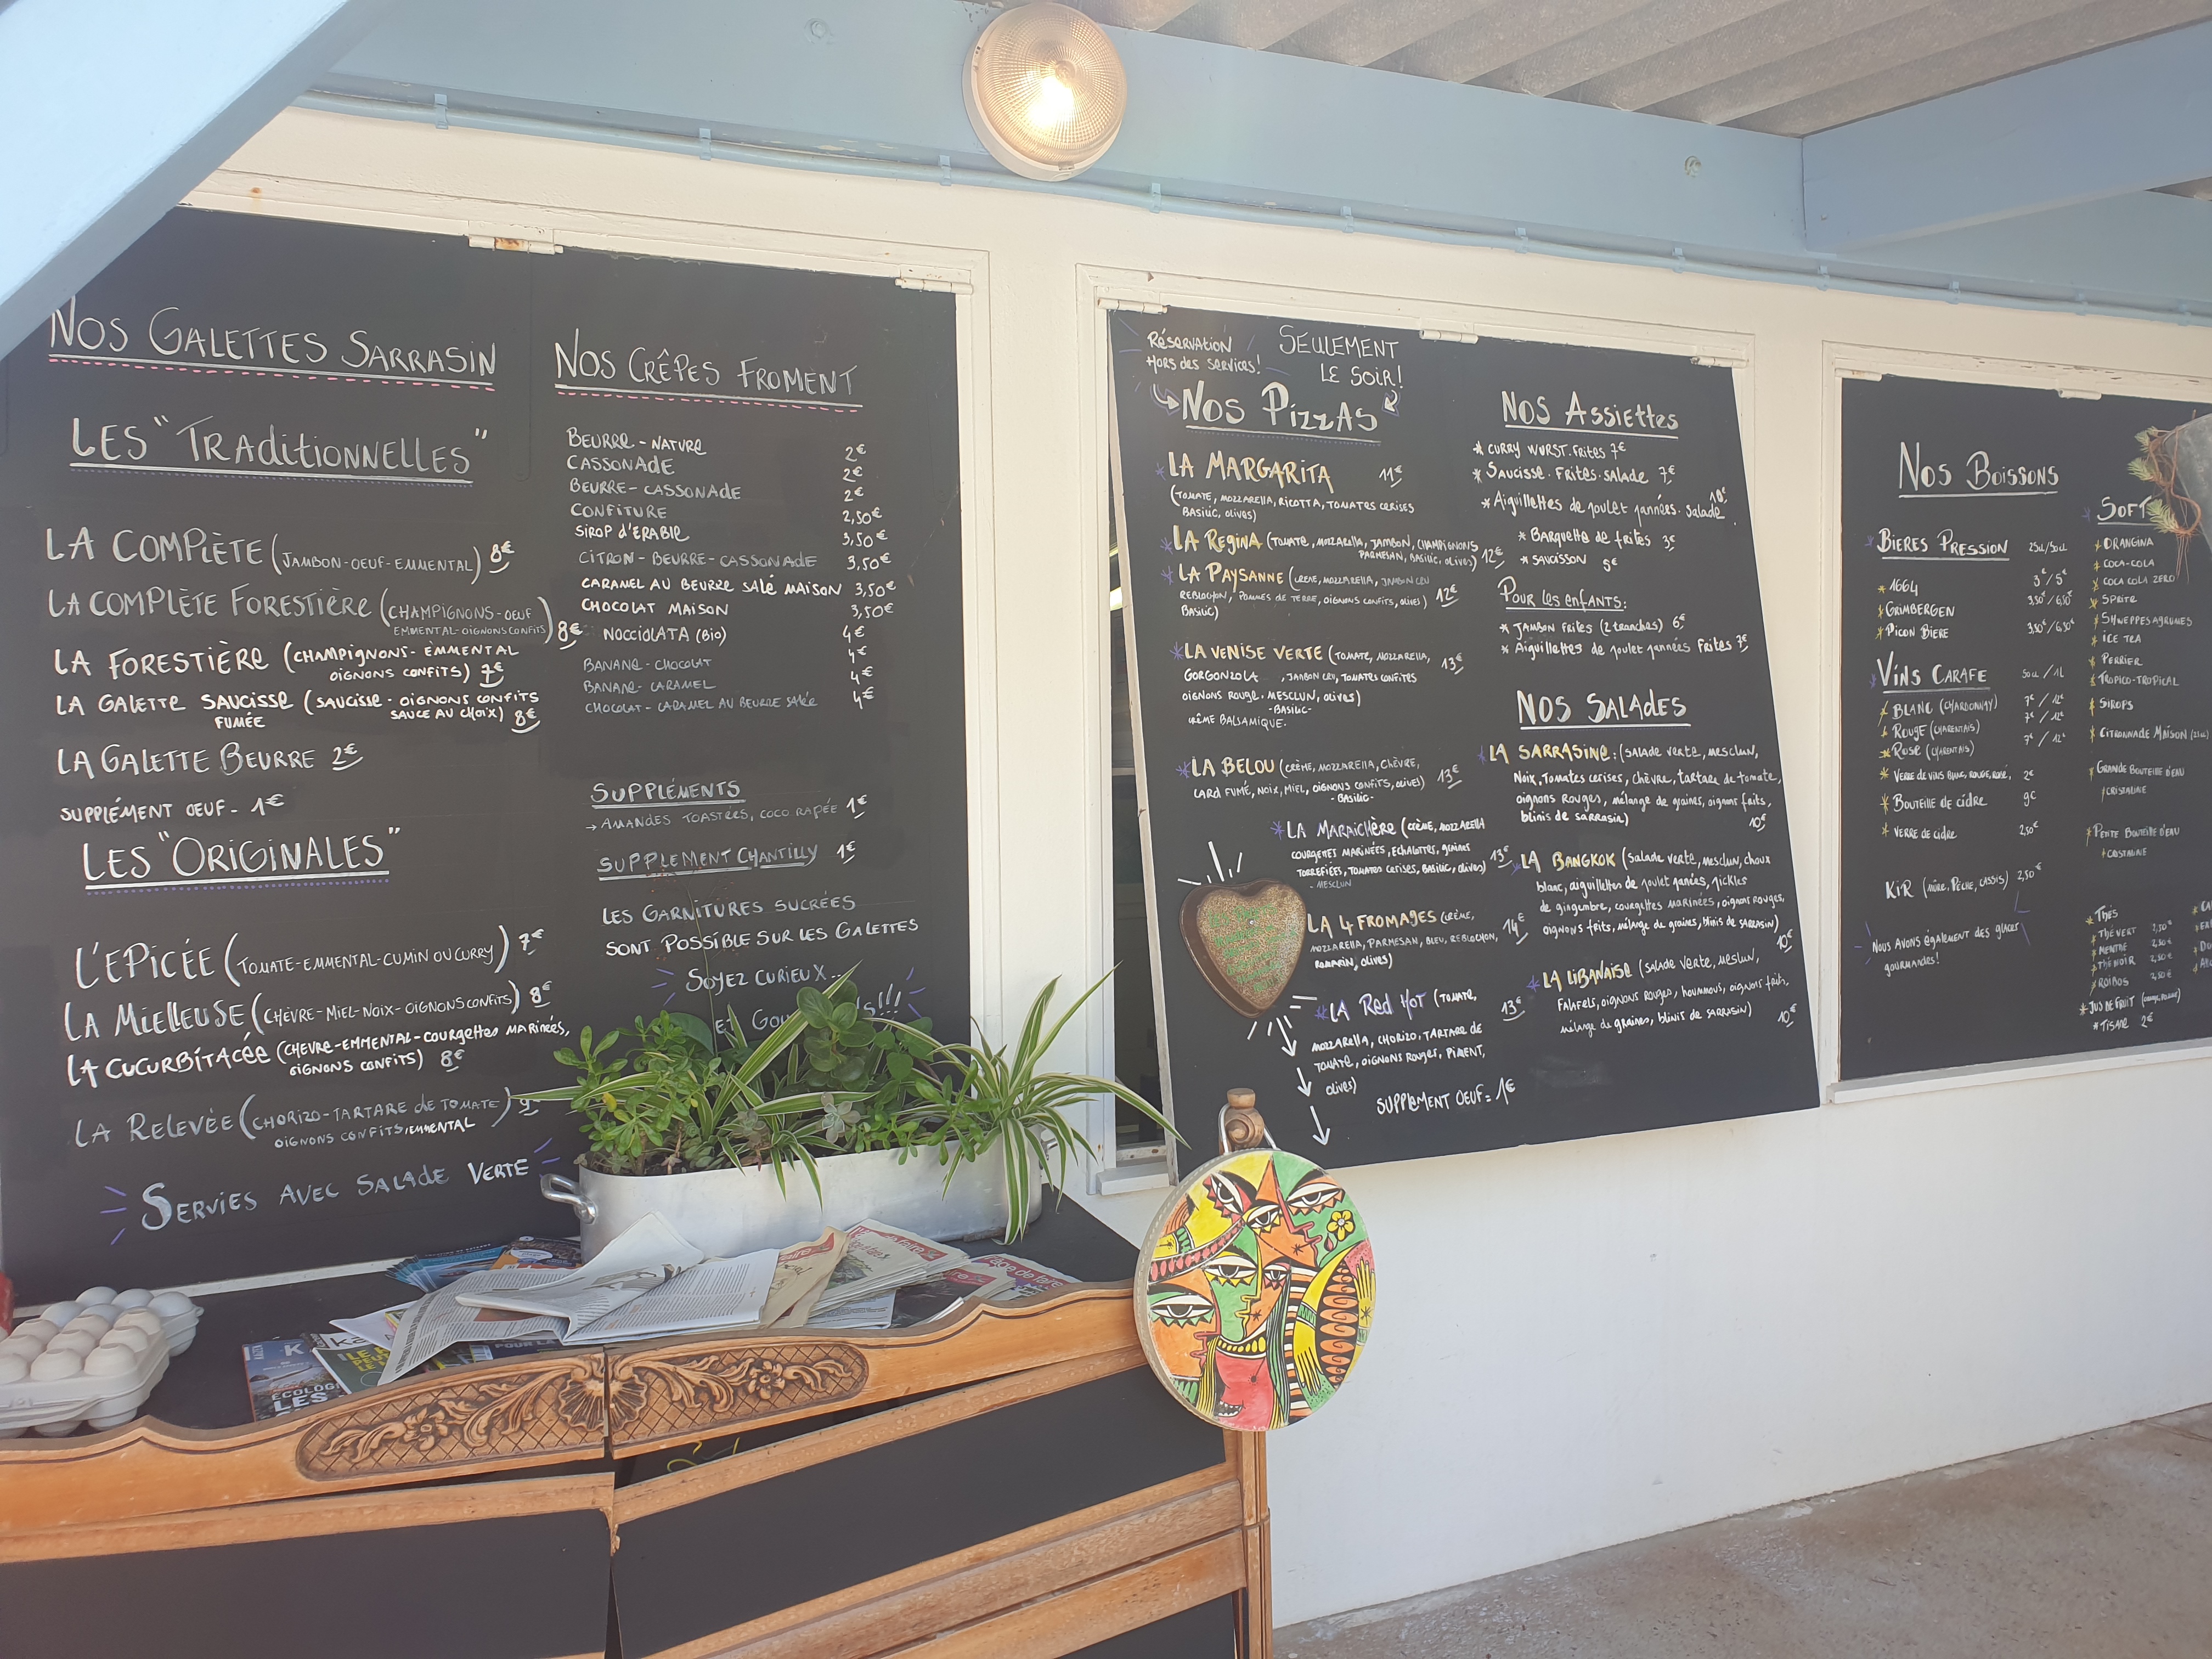 NOS GALETTES SARRASIN
LES "TRADITIONNELLES"
LA COMPLÈTE (JAMBON-OEUF-EMMENTAL) 8€
LA COMPLÈTE FORESTIÈRE (CHAMPIGNONS-OEUF
EMMENTAL-OIGNONS CONFITS) 8€
LA FORESTIÈRE (CHAMPIGNONS-EMMENTAL
OIGNONS CONFITS) 7€
LA GALETTE SAUCISSE (SAUCISSE-OIGNONS CONFITS
FUMÉE SAUCE AU CHOIX) 8€
LA GALETTE BEURRE 2€
SUPPLÉMENT OEUF - 1€
LES "ORIGINALES"
L'EPICÉE (TOMATE-EMMENTAL-CUMIN OU CURRY) 7€
LA MIELLEUSE (CHÈVRE-MIEL-NOIX-OIGNONS CONFITS) 8€
LA CUCURBITACÉE (CHEVRE-EMMENTAL-COURGETTES MARINÉES,
OIGNONS CONFITS) 8€
LA RELEVÉE (CHORIZO-TARTARE DE TOMATE)
OIGNONS CONFITS, EMMENTAL
SERVIES AVEC SALADE VERTE
NOS CRÊPES FROMENT
BEURRE-NATURE 2€
CASSONADE 2€
BEURRE-CASSONADE 2€
CONFITURE 2,50€
SIROP D'ERABLE 3,50€
CITRON-BEURRE-CASSONADE 3,50€
CARAMEL AU BEURRE SALÉ MAISON 3,50€
CHOCOLAT MAISON 3,50€
NOCCIOLATA (BIO) 4€
BANANE-CHOCOLAT 4€
BANANE-CARAMEL 4€
CHOCOLAT-CARAMEL AU BEURRE SALÉE 4€
SUPPLÉMENTS
→ AMANDES TOASTÉES, COCO RAPÉE 1€
SUPPLEMENT CHANTILLY 1€
LES GARNITURES SUCRÉES
SONT POSSIBLE SUR LES GALETTES
SOYEZ CURIEUX...
RÉSERVATION
HORS DES SERVICES!
SEULEMENT
LE SOIR!
NOS PIZZAS
* LA MARGARITA 11€
(TOMATE, MOZZARELLA, RICOTTA, TOMATES CERISES
BASILIC, OLIVES)
* LA REGINA (TOMATE, MOZZARELLA, JAMBON, CHAMPIGNONS
PARMESAN, BASILIC, OLIVES) 12€
* LA PAYSANNE (CRÈME, MOZZARELLA, JAMBON CRU
REBLOCHON, POMMES DE TERRE, OIGNONS CONFITS, OLIVES) 12€
BASILIC)
* LA VENISE VERTE (TOMATE, MOZZARELLA, 13€
GORGONZOLA, JAMBON CRU, TOMATES CONFITES
OIGNONS ROUGE. MESCLUN, OLIVES)
-BASILIC-
CRÈME BALSAMIQUE.
* LA BELOU (CRÈME, MOZZARELLA, CHÈVRE, 13€
LARD FUMÉ, NOIX, MIEL, OIGNONS CONFITS, OLIVES)
-BASILIC-
* LA MARAICHÈRE (CRÈME, MOZZARELLA
COURGETTES MARINÉES, ECHALOTTES, GRAINES 13€
TORREFIÉES, TOMATES CERISES, BASILIC, OLIVES)
- MESCLUN
LA 4 FROMAGES (CRÈME, 14€
MOZZARELLA, PARMESAN, BLEU, REBLOCHON,
ROMARIN, OLIVES)
* LA RED HOT (TOMATE, 13€
MOZZARELLA, CHORIZO, TARTARE DE
TOMATE, OIGNONS ROUGES, PIMENT,
OLIVES)
SUPPLEMENT OEUF = 1€
NOS ASSIETTES
* CURRY WURST. FRITES 7€
* SAUCISSE. FRITES. SALADE 7€
* Aiguillettes de poulet pannées. Salade 10€
* BARQUETTE de frites 3€
* SAUCISSON
POUR LES ENFANTS:
* JAMBON FRITES (2 tranches) 6€
* Aiguillettes de poulet pannées Frites 7€
NOS SALADES
* LA SARRASINE: (SALADE VERTE, MESCLUN,
NOIX, TOMATES CERISES, CHÈVRE, TARTARE DE TOMATE,
OIGNONS ROUGES, MÉLANGE DE GRAINES, OIGNONS FRITS,
BLINIS DE SARRASIN) 10€
* LA BANGKOK (SALADE VERTE, MESCLUN, CHOUX
BLANC, AIGUILLETTES DE POULET PANÉES, PICKLES
DE GINGEMBRE, COURGETTES MARINÉES, OIGNONS ROUGES,
OIGNONS FRITS, MÉLANGE DE GRAINES, BLINIS DE SARRASIN) 10€
* LA LIBANAISE (SALADE VERTE, MESCLUN,
FALAFELS, OIGNONS ROUGES, HOUMMOUS, OIGNONS FRITS,
MÉLANGE DE GRAINES, BLINIS DE SARRASIN) 10€
NOS BOISSONS
* BIERES PRESSION 25cl/50cl
* 1664 3€/5€
* GRIMBERGEN 3,50€/6,50€
* PICON BIERE 3,50€/6,50€
* VINS CARAFE 50cl/1L
* BLANC (CHARDONNAY) 7€/12€
* ROUGE (CHARENTAIS) 7€/12€
* ROSÉ (CHARENTAIS) 7€/12€
* VERRE DE VINS BLANC, ROUGE, ROSÉ, 2€
* BOUTEILLE DE CIDRE 9€
* VERRE DE CIDRE 2,50€
KIR (MÛRE, PÊCHE, CASSIS) 2,50€
NOUS AVONS ÉGALEMENT DES GLACES
GOURMANDES!
* SOFT
* ORANGINA
* COCA-COLA
* COCA COLA ZERO
* SPRITE
* SHWEPPES AGRUMES
* ICE TEA
* PERRIER
* TROPICO-TROPICAL
* SIROPS
* CITRONNADE MAISON
* GRANDE BOUTEILLE D'EAU
* CRISTALINE
* PETITE BOUTEILLE D'EAU
* CRISTALINE
* THÉS
* THÉ VERT 2,50€
* MENTHE 2,50€
* THÉ NOIR 2,50€
* ROIBOS 2,50€
* JUS DE FRUIT
* TISANE 2€
ÉCOLOGIE
LES